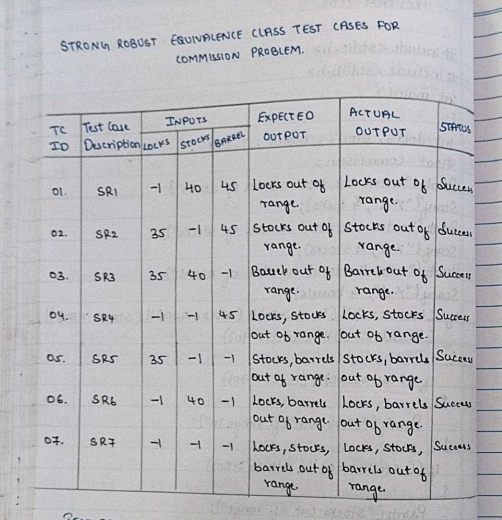 STRONG ROBUST EQUIVALENCE CLASS TEST CASES FOR
COMMISSION PROBLEM.
TC ID | Test Case Description | INPUTS: LOCKS | STOCKS | BARREL | EXPECTED OUTPUT | ACTUAL OUTPUT | STATUS
01. | SR1 | -1 | 40 | 45 | Locks out of range. | Locks out of range. | Success
02. | SR2 | 35 | -1 | 45 | Stocks out of range. | Stocks out of range. | Success
03. | SR3 | 35 | 40 | -1 | Barrels out of range. | Barrels out of range. | Success
04. | SR4 | -1 | -1 | 45 | Locks, stocks out of range. | Locks, stocks out of range. | Success
05. | SR5 | 35 | -1 | -1 | Stocks, barrels out of range. | Stocks, barrels out of range | Success
06. | SR6 | -1 | 40 | -1 | Locks, barrels out of range. | Locks, barrels out of range. | Success
07. | SR7 | -1 | -1 | -1 | Locks, stocks, barrels out of range. | Locks, stocks, barrels out of range. | Success